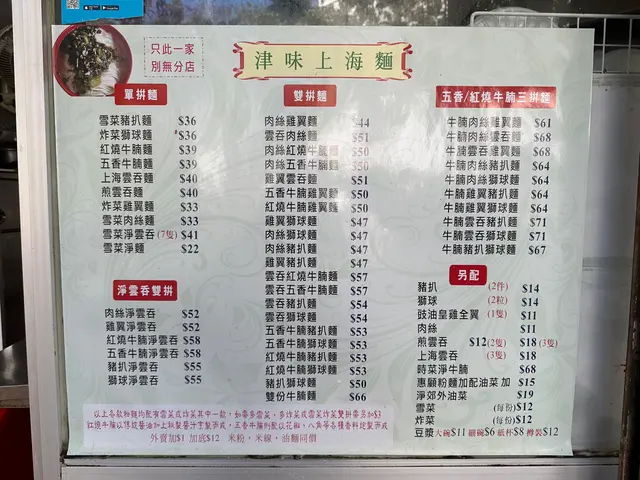 只此一家
別無分店
津味上海麵
單拼麵
雪菜豬扒麵 $36
炸菜獅球麵 $36
紅燒牛腩麵 $39
五香牛腩麵 $39
上海雲吞麵 $40
煎雲吞麵 $40
炸菜雞翼麵 $33
雪菜肉絲麵 $33
雪菜淨雲吞(7隻) $41
雪菜淨麵 $22
淨雲吞雙拼
肉絲淨雲吞 $52
雞翼淨雲吞 $52
紅燒牛腩淨雲吞 $58
五香牛腩淨雲吞 $58
豬扒淨雲吞 $55
獅球淨雲吞 $55
雙拼麵
肉絲雞翼麵 $44
雲吞肉絲麵 $51
肉絲紅燒牛腩麵 $50
肉絲五香牛腩麵 $50
雞翼雲吞麵 $51
五香牛腩雞翼麵 $50
紅燒牛腩雞翼麵 $50
雞翼獅球麵 $47
肉絲獅球麵 $47
肉絲豬扒麵 $47
雞翼豬扒麵 $47
雲吞紅燒牛腩麵 $57
雲吞五香牛腩麵 $57
雲吞豬扒麵 $54
雲吞獅球麵 $54
五香牛腩豬扒麵 $53
五香牛腩獅球麵 $53
紅燒牛腩豬扒麵 $53
紅燒牛腩獅球麵 $53
豬扒獅球麵 $50
雙份牛腩麵 $66
五香/紅燒牛腩三拼麵
牛腩肉絲雞翼麵 $61
牛腩肉絲雲吞麵 $68
牛腩雲吞雞翼麵 $68
牛腩肉絲豬扒麵 $64
牛腩肉絲獅球麵 $64
牛腩雞翼豬扒麵 $64
牛腩雞翼獅球麵 $64
牛腩雲吞豬扒麵 $71
牛腩雲吞獅球麵 $71
牛腩豬扒獅球麵 $67
另配
豬扒 (2件) $14
獅球 (2粒) $14
豉油皇雞全翼 (1隻) $11
肉絲 $11
煎雲吞 $12(2隻) $18(3隻)
上海雲吞 (3隻) $18
時菜淨牛腩 $68
惠顧粉麵加配油菜加 $15
淨郊外油菜 $19
雪菜 (每份)$12
炸菜 (每份)$12
豆漿大碗$11 細碗$6 紙杯$8 樽裝$12
以上各款粉麵均配有雪菜或炸菜其中一款，如需多雪菜，多炸菜或雪菜炸菜雙拼需另加$3
外賣加$1 加底$12 米粉，米線，油麵同價